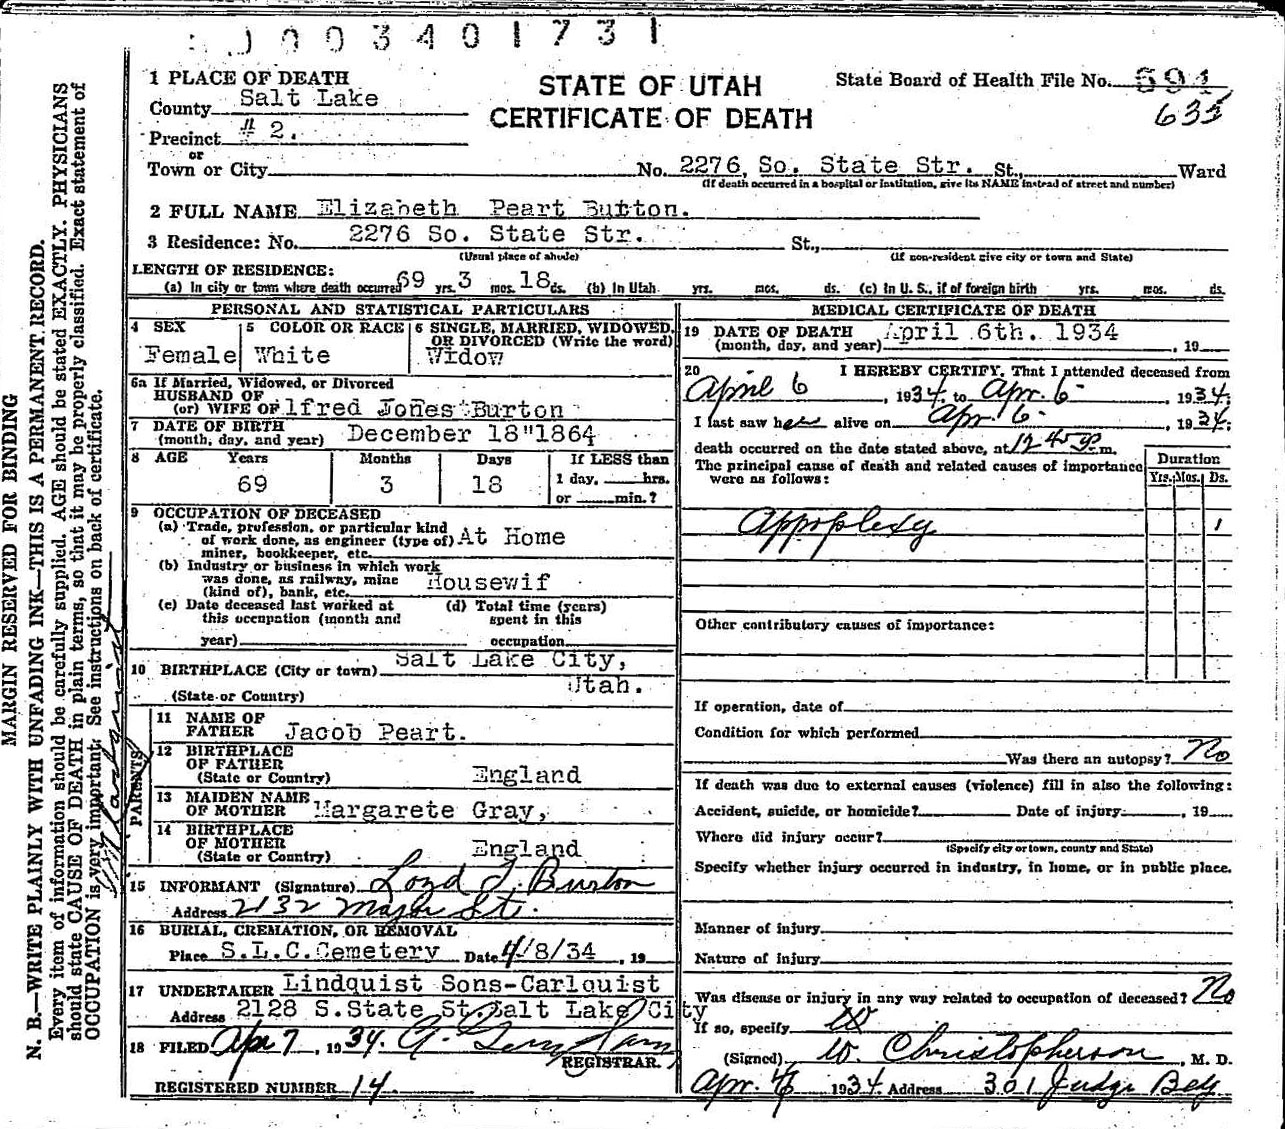 0003401731
1 PLACE OF DEATH
STATE OF UTAH
CERTIFICATE OF DEATH
State Board of Health File No. 594
635
County Salt Lake
Precinct # 2.
or
Town or City No. 2276, So. State Str. St., Ward
(If death occurred in a hospital or institution, give its NAME instead of street and number)
2 FULL NAME Elizabeth Peart Burton.
3 Residence: No. 2276 So. State Str. St.,
(Usual place of abode) (If non-resident give city or town and State)
LENGTH OF RESIDENCE:
(a) In city or town where death occurred 69 yrs. 3 mos. 18 ds. (b) In Utah yrs. mos. ds. (c) In U. S., if of foreign birth yrs. mos. ds.
PERSONAL AND STATISTICAL PARTICULARS
4 SEX
Female
5 COLOR OR RACE
White
6 SINGLE, MARRIED, WIDOWED, OR DIVORCED (Write the word)
Widow
6a If Married, Widowed, or Divorced
HUSBAND OF
(or) WIFE OF lfred Jones Burton
7 DATE OF BIRTH
(month, day, and year) December 18"1864
8 AGE Years Months Days If LESS than
69 3 18 1 day, hrs.
or min.?
9 OCCUPATION OF DECEASED
(a) Trade, profession, or particular kind
of work done, as engineer (type of) At Home
miner, bookkeeper, etc.
(b) Industry or business in which work
was done, as railway, mine Housewif
(kind of), bank, etc.
(c) Date deceased last worked at (d) Total time (years)
this occupation (month and spent in this
year) occupation
10 BIRTHPLACE (City or town) Salt Lake City,
(State or Country) Utah.
PARENTS
11 NAME OF
FATHER Jacob Peart.
12 BIRTHPLACE
OF FATHER
(State or Country) England
13 MAIDEN NAME
OF MOTHER Margarete Gray,
14 BIRTHPLACE
OF MOTHER
(State or Country) England
15 INFORMANT (Signature) Loyd J. Burton
Address 2132 Major St.
16 BURIAL, CREMATION, OR REMOVAL
Place S.L.C.Cemetery Date 4/8/34, 19
17 UNDERTAKER Lindquist Sons-Carlquist
Address 2128 S.State St.Salt Lake City
18 FILED Apr 7, 1934.
REGISTRAR.
REGISTERED NUMBER 14
MEDICAL CERTIFICATE OF DEATH
19 DATE OF DEATH April 6th. 1934
(month, day, and year) , 19
20 I HEREBY CERTIFY, That I attended deceased from
April 6, 1934, to Apr. 6-, 1934;
I last saw her alive on Apr. 6-, 1934;
death occurred on the date stated above, at 12:45 p.m.
The principal cause of death and related causes of importance
were as follows:
Duration
Yrs. Mos. Ds.
Appoplexy 1
Other contributory causes of importance:
If operation, date of
Condition for which performed
Was there an autopsy? No
If death was due to external causes (violence) fill in also the following:
Accident, suicide, or homicide? Date of injury , 19
Where did injury occur?
(Specify city or town, county and State)
Specify whether injury occurred in industry, in home, or in public place.
Manner of injury
Nature of injury
Was disease or injury in any way related to occupation of deceased? No
If so, specify
(Signed) W. Christopherson, M. D.
Apr. 6 1934 Address 301 Judge Bldg
MARGIN RESERVED FOR BINDING
N. B.—WRITE PLAINLY WITH UNFADING INK—THIS IS A PERMANENT RECORD.
Every item of information should be carefully supplied. AGE should be stated EXACTLY. PHYSICIANS
should state CAUSE OF DEATH in plain terms, so that it may be properly classified. Exact statement of
OCCUPATION is very important. See instructions on back of certificate.